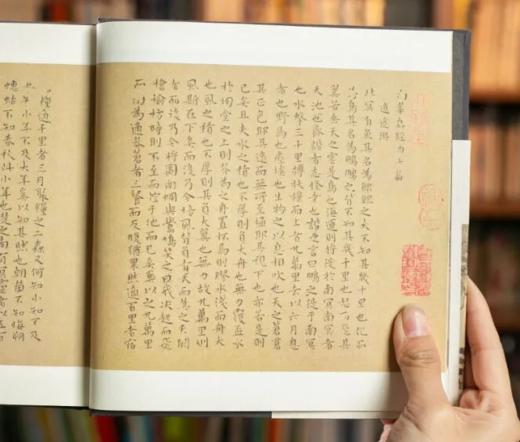 南華真經內七篇
逍遙游
北冥有魚其名為鯤鯤之大不知其幾千里也化而
為鳥其名為鵬鵬之背不知其幾千里也怒而飛其
翼若垂天之雲是鳥也海運則將徙於南冥南冥者
天池也齊諧者志怪者也諧之言曰鵬之徙于南冥
也水擊三千里摶扶搖而上者九萬里去以六月息
者也野馬也塵埃也生物之以息相吹也天之蒼蒼
其正色耶其遠而無所至極耶其視下也亦若是則
已矣且夫水之積也不厚則其負大舟也無力覆盃水
於坳堂之上則芥為之舟置杯焉則膠水淺而舟大
也風之積也不厚則其負大翼也無力故九萬里則
風斯在下矣而後乃今培風背負青天而莫之夭閼
者而後乃今將圖南蜩與鷽鳩笑之曰我決起而飛
槍榆枋時則不至而控于地而已矣奚以之九萬里
而南為適莽蒼者三飡而反腹猶果然適百里者宿
糧適千里者三月聚糧之二蟲又何知小知不及
大知小年不及大年奚以知其然也朝菌不知晦朔
蟪蛄不知春秋此小年也楚之南有冥靈者以五百